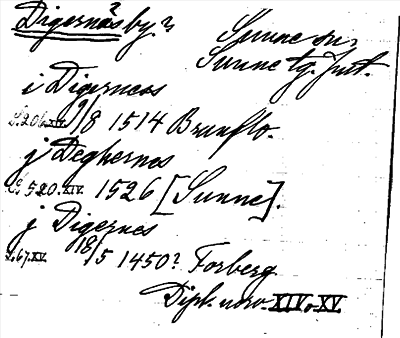 Digernäs by?
Sunne sn,
Sunne tg. Jmt.
i Digerness
S.206.XIV. 9/8 1514 Brunflo.
j Deghernes
S. 520.XIV. 1526 [Sunne].
j Digernes
S.67.XV. 18/5 1450? Forberg
Dipl. norv. XIV o. XV.